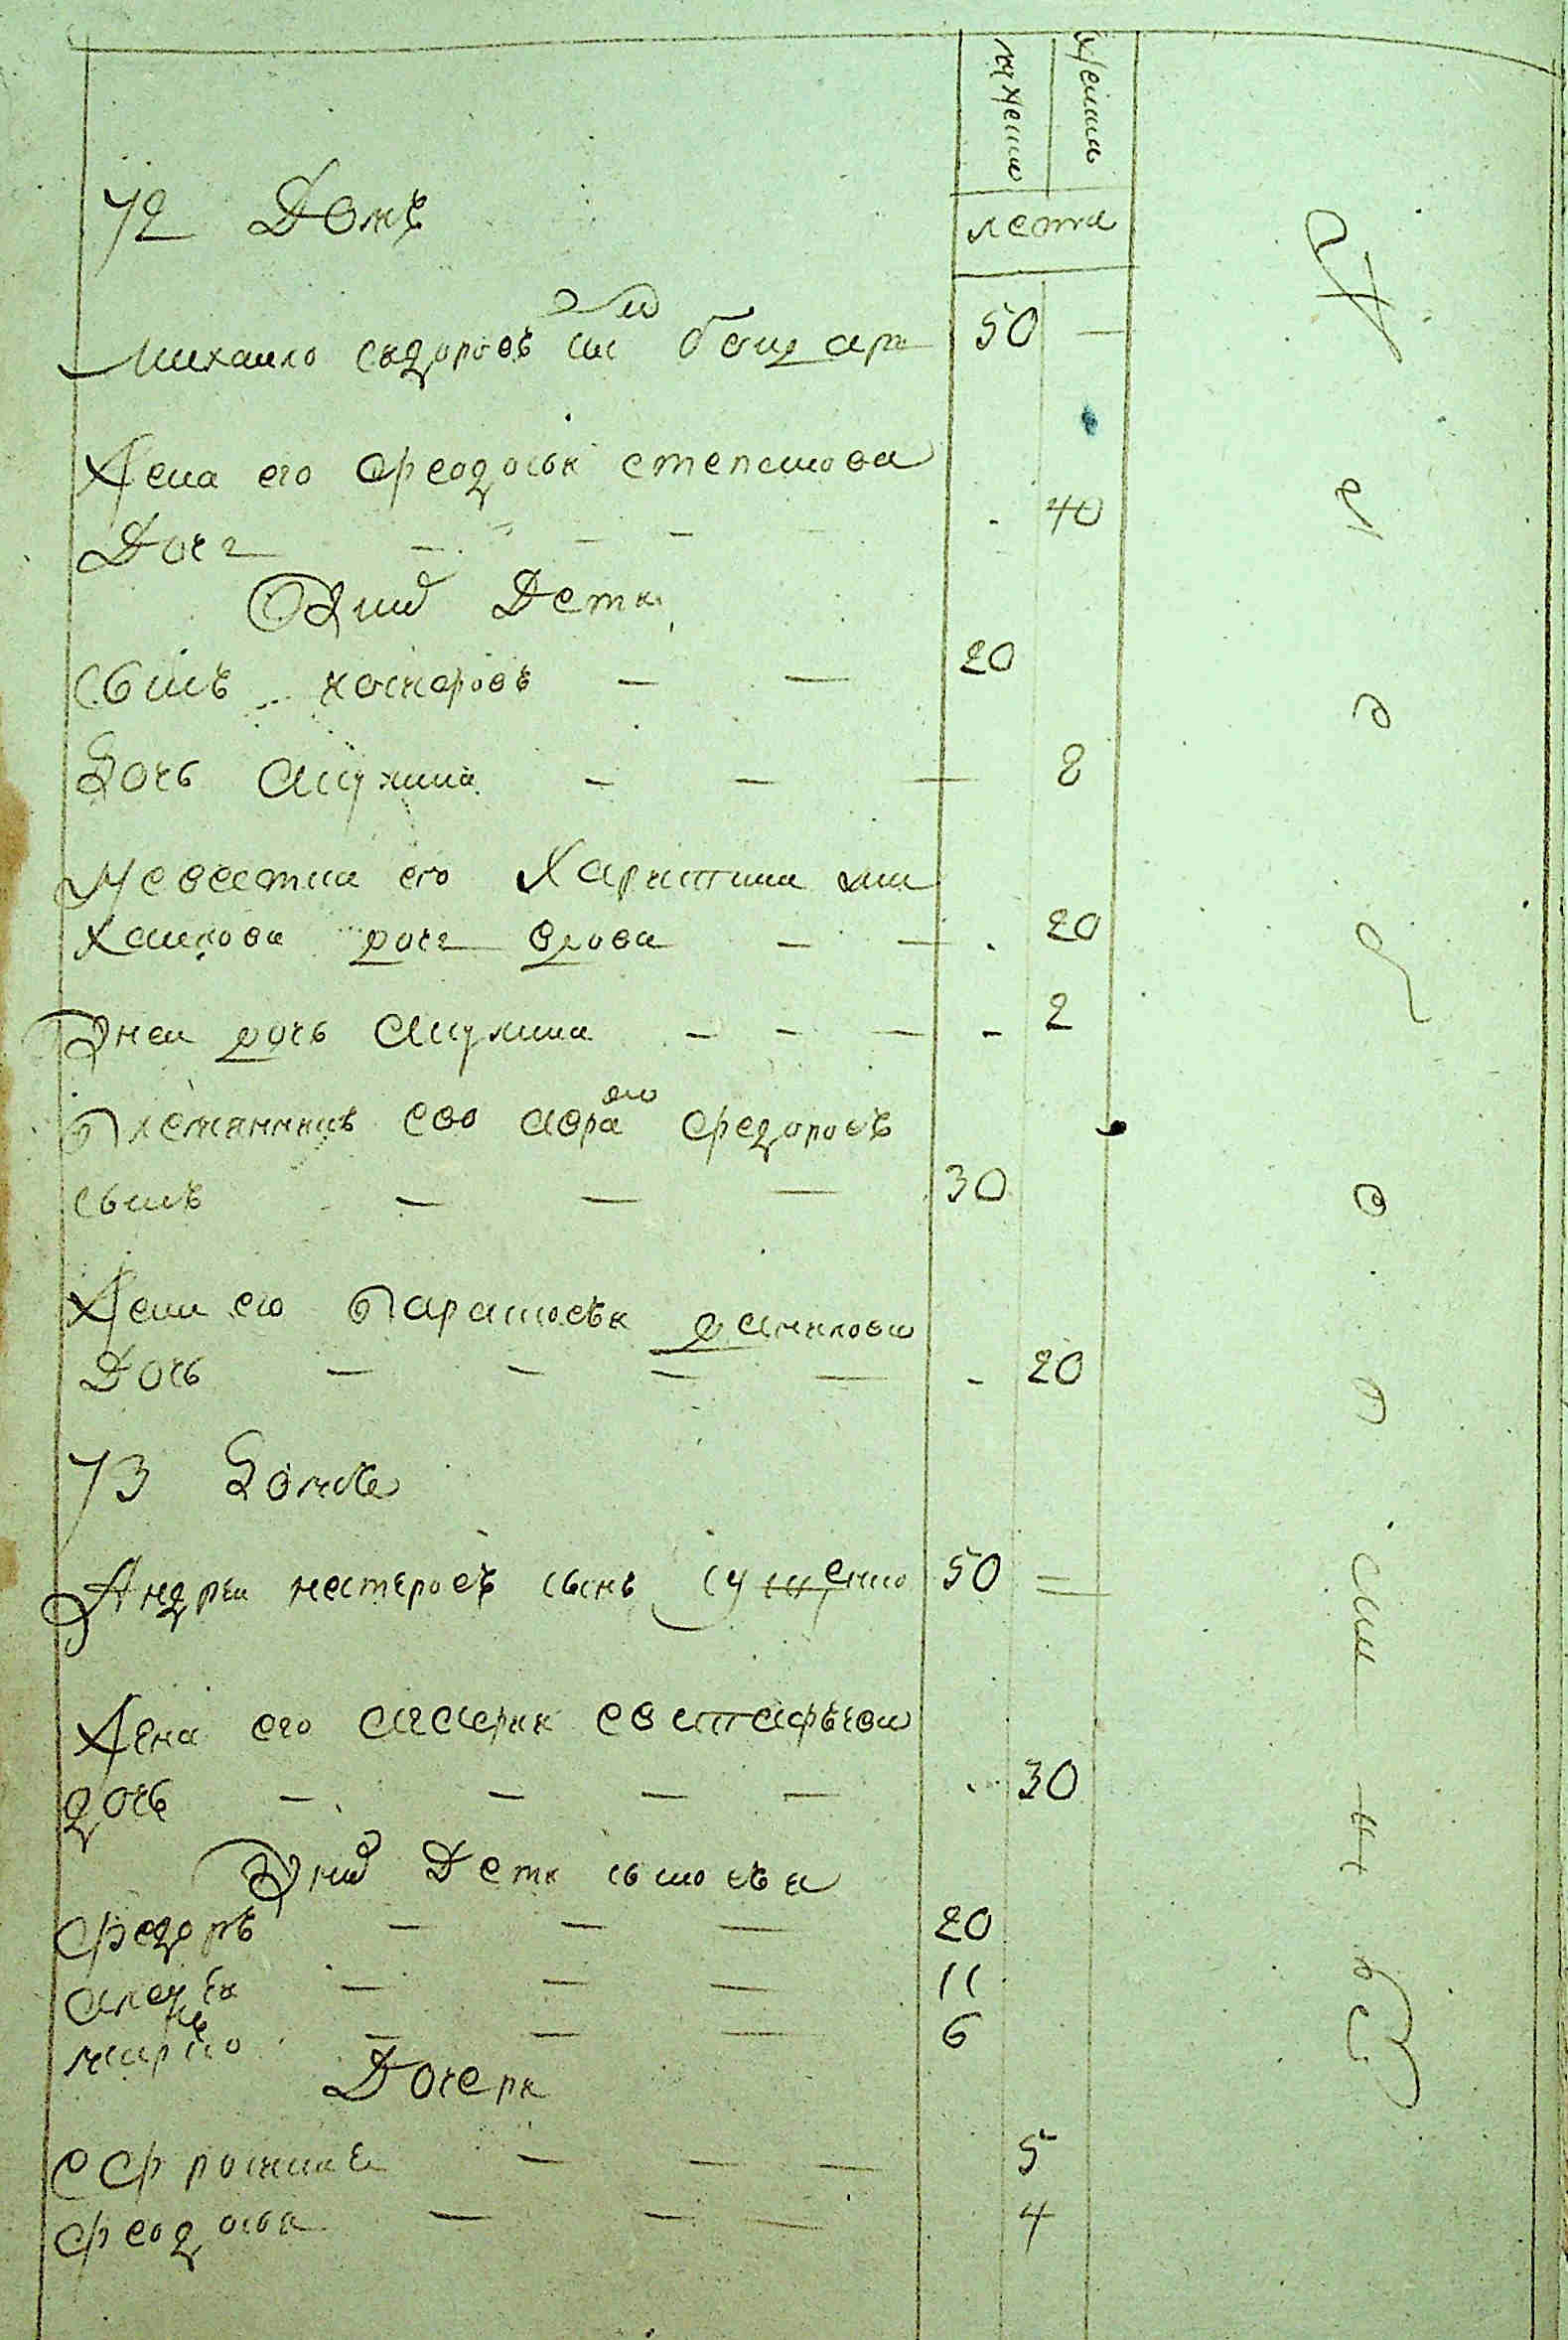 мужеска
женска
лета
72 Домъ
Михаило сидоровъ снъ бондарь 50 —
Жена его Феодосия степанова
Дочь — — — 40
У них Дети
Сынъ никифоръ — — 20
Дочь Акулина — — — 8
Невестка его Харитина ми
хаилова дочь вдова — — 20
У неи дочь Акулина — — — 2
Племянникъ ево Федоровъ
сынъ — — — 30
Жена его Парасковья данилова
Дочь — — — — 20
73 Домъ
Андреи нестеровъ сынъ 50
Жена его евстафьева
дочь — — — — 30
У них Дети сыновья
Федоръ — — — 20
— — — 11
марко — — — 6
Дочери
Ефросинья — — — 5
Феодосия — — — 4